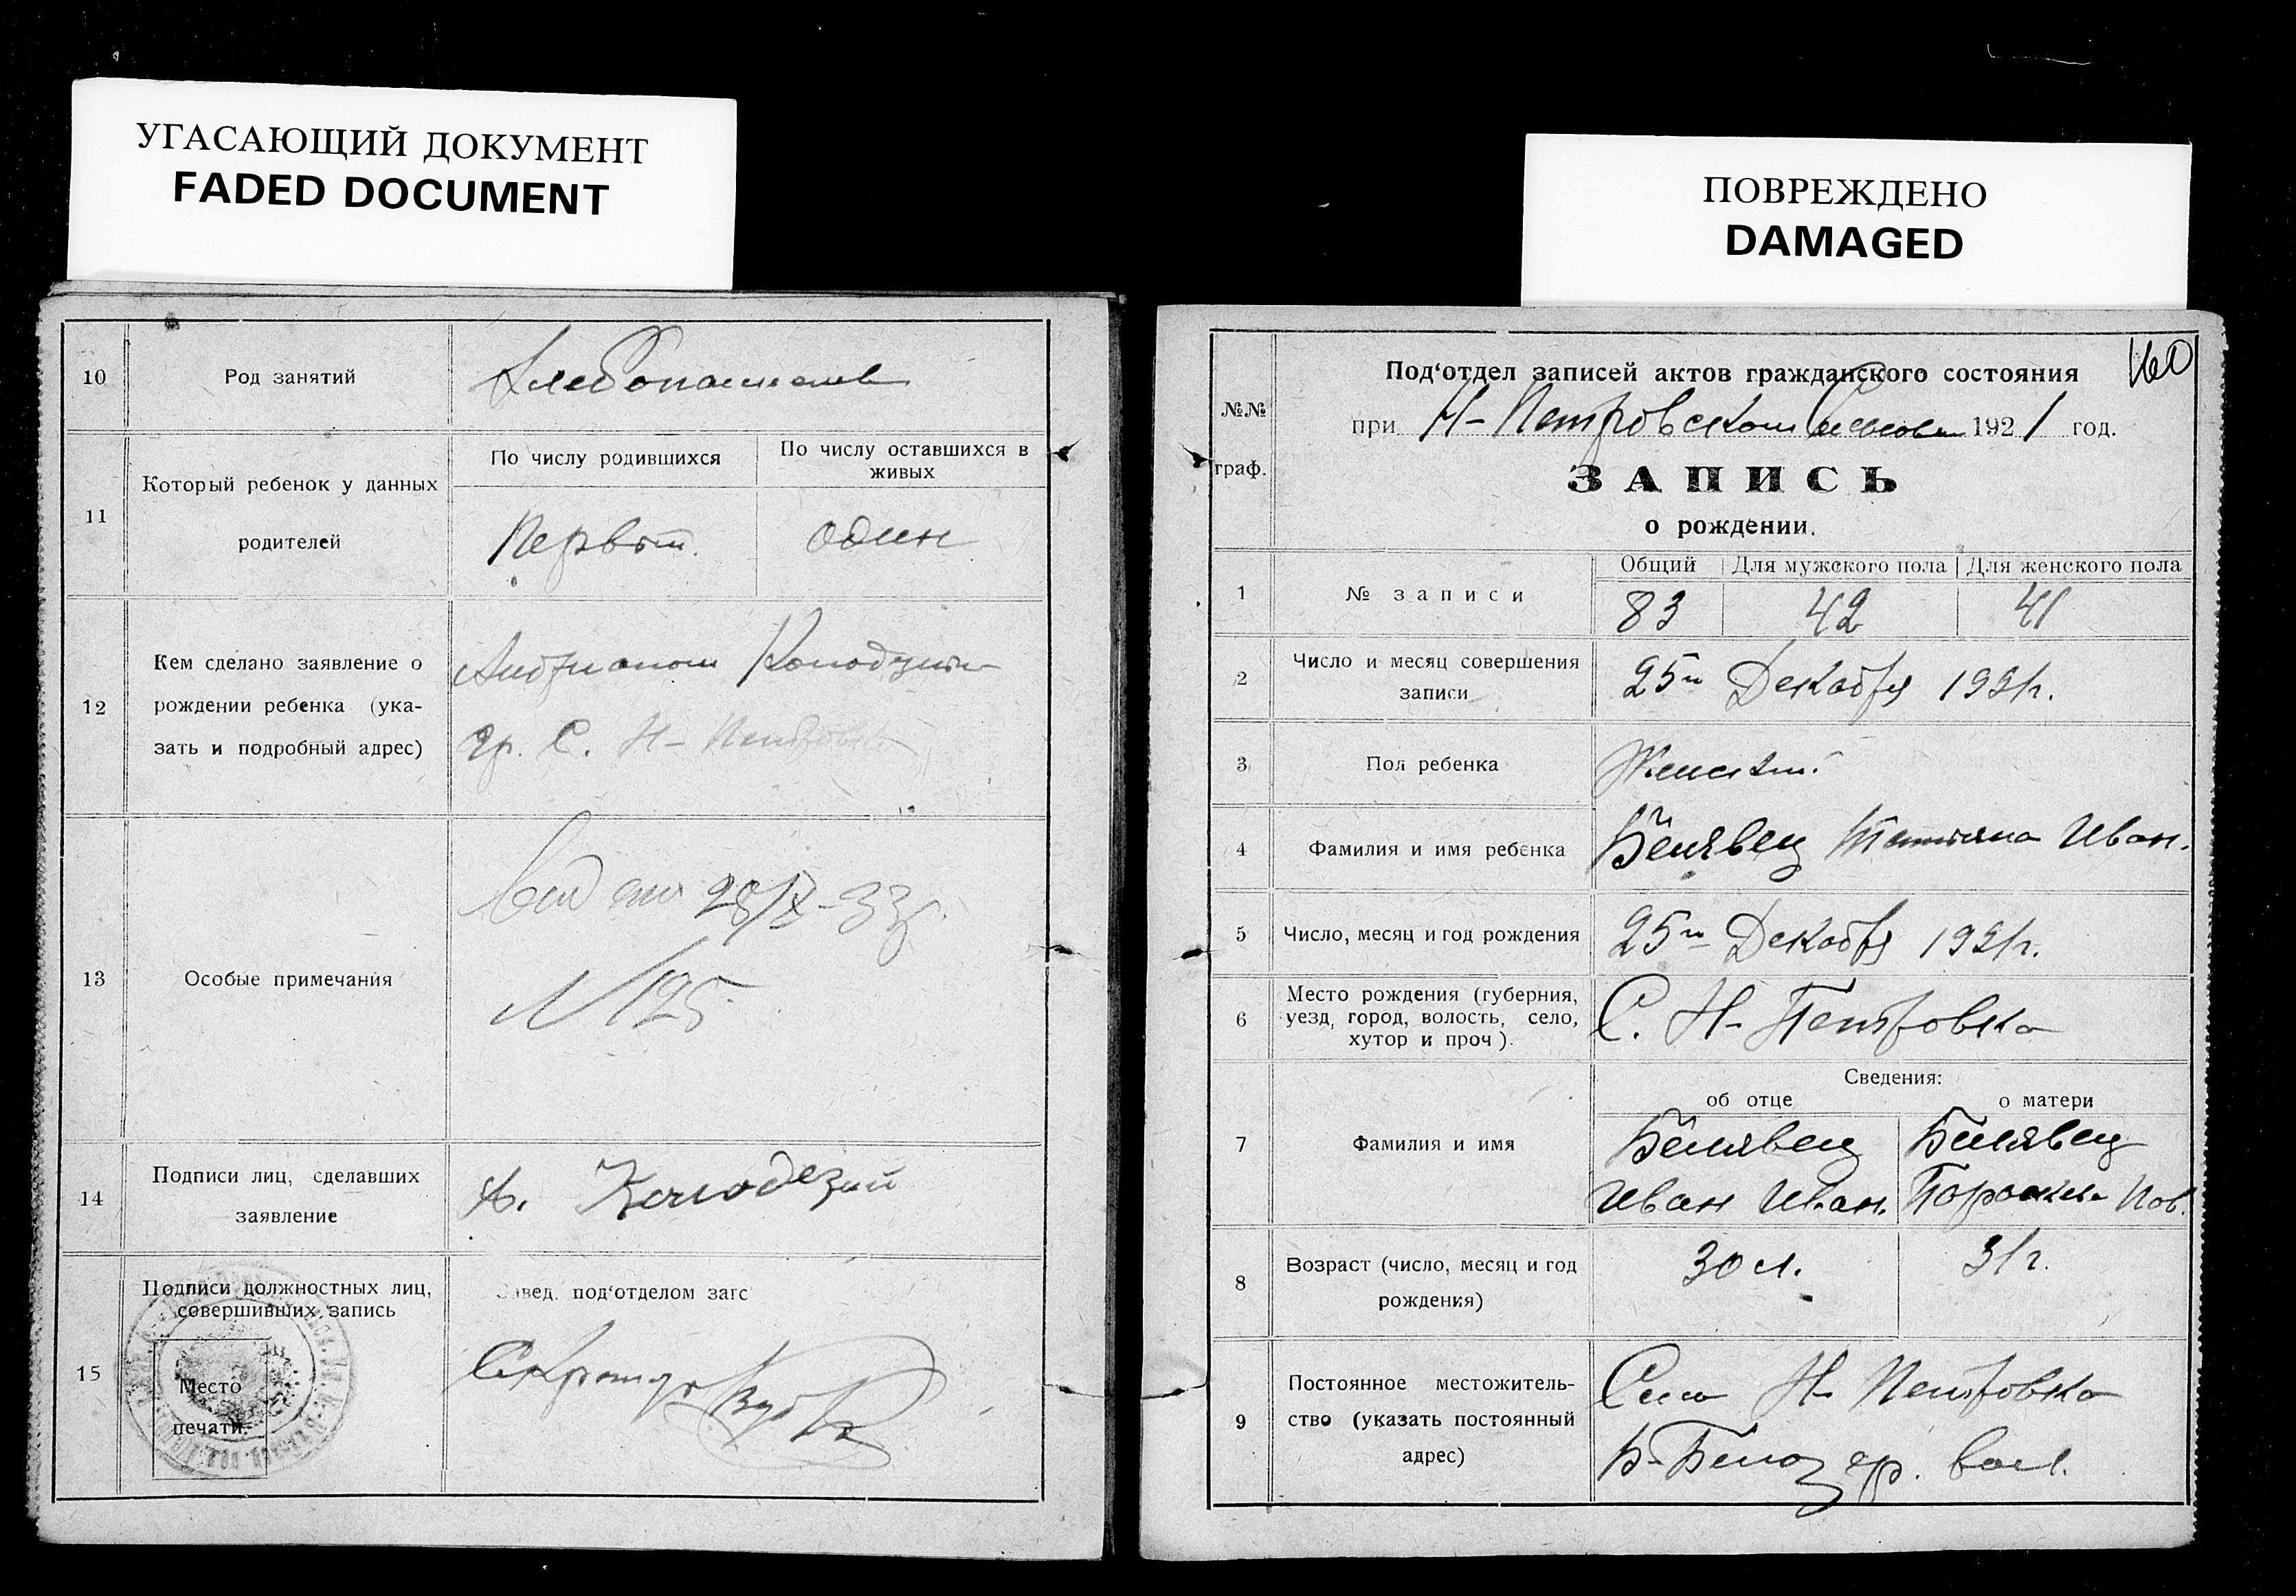 УГАСАЮЩИЙ ДОКУМЕНТ
FADED DOCUMENT
10
Род занятий
Хлебопашцев
11
Который ребенок у данных
родителей
По числу родившихся
По числу оставшихся в
живых
Первый.
один
12
Кем сделано заявление о
рождении ребенка (ука-
зать и подробный адрес)
Андрианом Колодзиим
гр. С. Н-Петровка
13
Особые примечания
28/X-33г.
N 125
14
Подписи лиц, сделавших
заявление
А. Колодезий
15
Подписи должностных лиц,
совершивших запись
Место
печати.
Завед. под‘отделом загс
Секретарь
ПОВРЕЖДЕНО
DAMAGED
160
№№
граф.
Под‘отдел записей актов гражданского состояния
при Н-Петровском 1921 год.
ЗАПИСЬ
о рождении.
1
№ записи
Общий
Для мужского пола
Для женского пола
83
42
41
2
Число и месяц совершения
записи
25го Декабря 1921г.
3
Пол ребенка
Женский
4
Фамилия и имя ребенка
Белявец Татияна Иван.
5
Число, месяц и год рождения
25го Декабря 1921г.
6
Место рождения (губерния,
уезд, город, волость, село,
хутор и проч).
С. Н-Петровка
7
Фамилия и имя
Сведения:
об отце
о матери
Белявец
Иван Иван.
Белявец
Пораскева Пов.
8
Возраст (число, месяц и год
рождения)
30 л.
31 г.
9
Постоянное местожитель-
ство (указать постоянный
адрес)
Село Н-Петровка
Б-Белозер. вол.